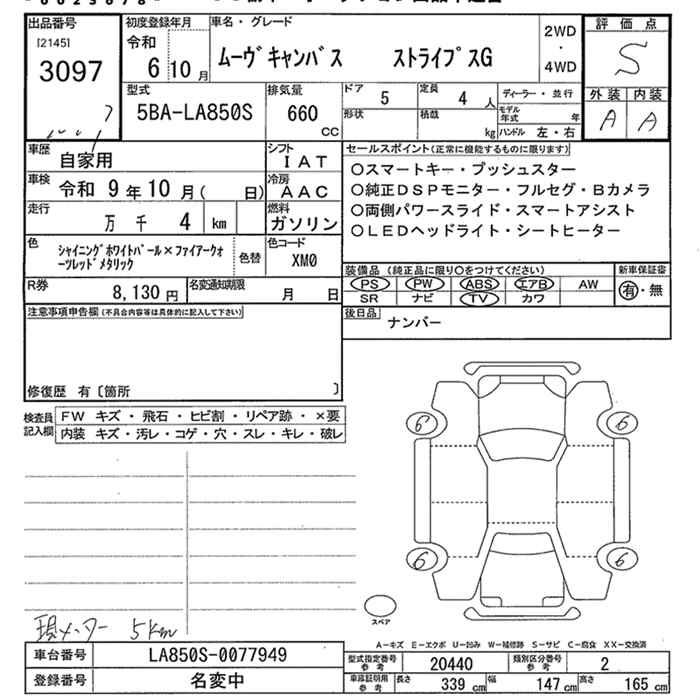 出品番号 初度登録年月 車名・グレード 2WD・4WD 評価点
[2145] 令和
3097 6 10月 ムーヴキャンバス ストライプスG S
型式 排気量 ドア 5 定員 4人 ディーラー・並行 外装 内装
5BA-LA850S 660cc 形状 積載 kg モデル年式 年 A A
ハンドル 左・右
車歴 自家用 シフト IAT セールスポイント(正常に機能するものに限ります)
車検 令和 9年10月( 日) 冷房 AAC ○スマートキー・プッシュスター
走行 万 千 4 km 燃料 ガソリン ○純正DSPモニター・フルセグ・Bカメラ
○両側パワースライド・スマートアシスト
色 シャイニングホワイトパール×ファイアークォーツレッドメタリック 色替 色コード XM0 ○LEDヘッドライト・シートヒーター
装備品(純正品に限り○をつけてください) 新車保証書
R券 8,130円 名変通知期限 月 日 PS PW ABS エアB AW 有・無
SR ナビ TV カワ
注意事項申告欄(不具合内容等は具体的に記入して下さい) 後日品 ナンバー
修復歴 有〔箇所 〕
検査員記入欄 FW キズ・飛石・ヒビ割・リペア跡・×要
内装 キズ・汚レ・コゲ・穴・スレ・キレ・破レ
6 6
6 6
スペア
現メーター 5km
A-キズ E-エクボ U-凹み W-補修跡 S-サビ C-腐食 XX-交換済
車台番号 LA850S-0077949 型式指定番号参考 20440 類別区分番号参考 2
登録番号 名変中 車庫証明用参考 長さ 339cm 幅 147cm 高さ 165cm